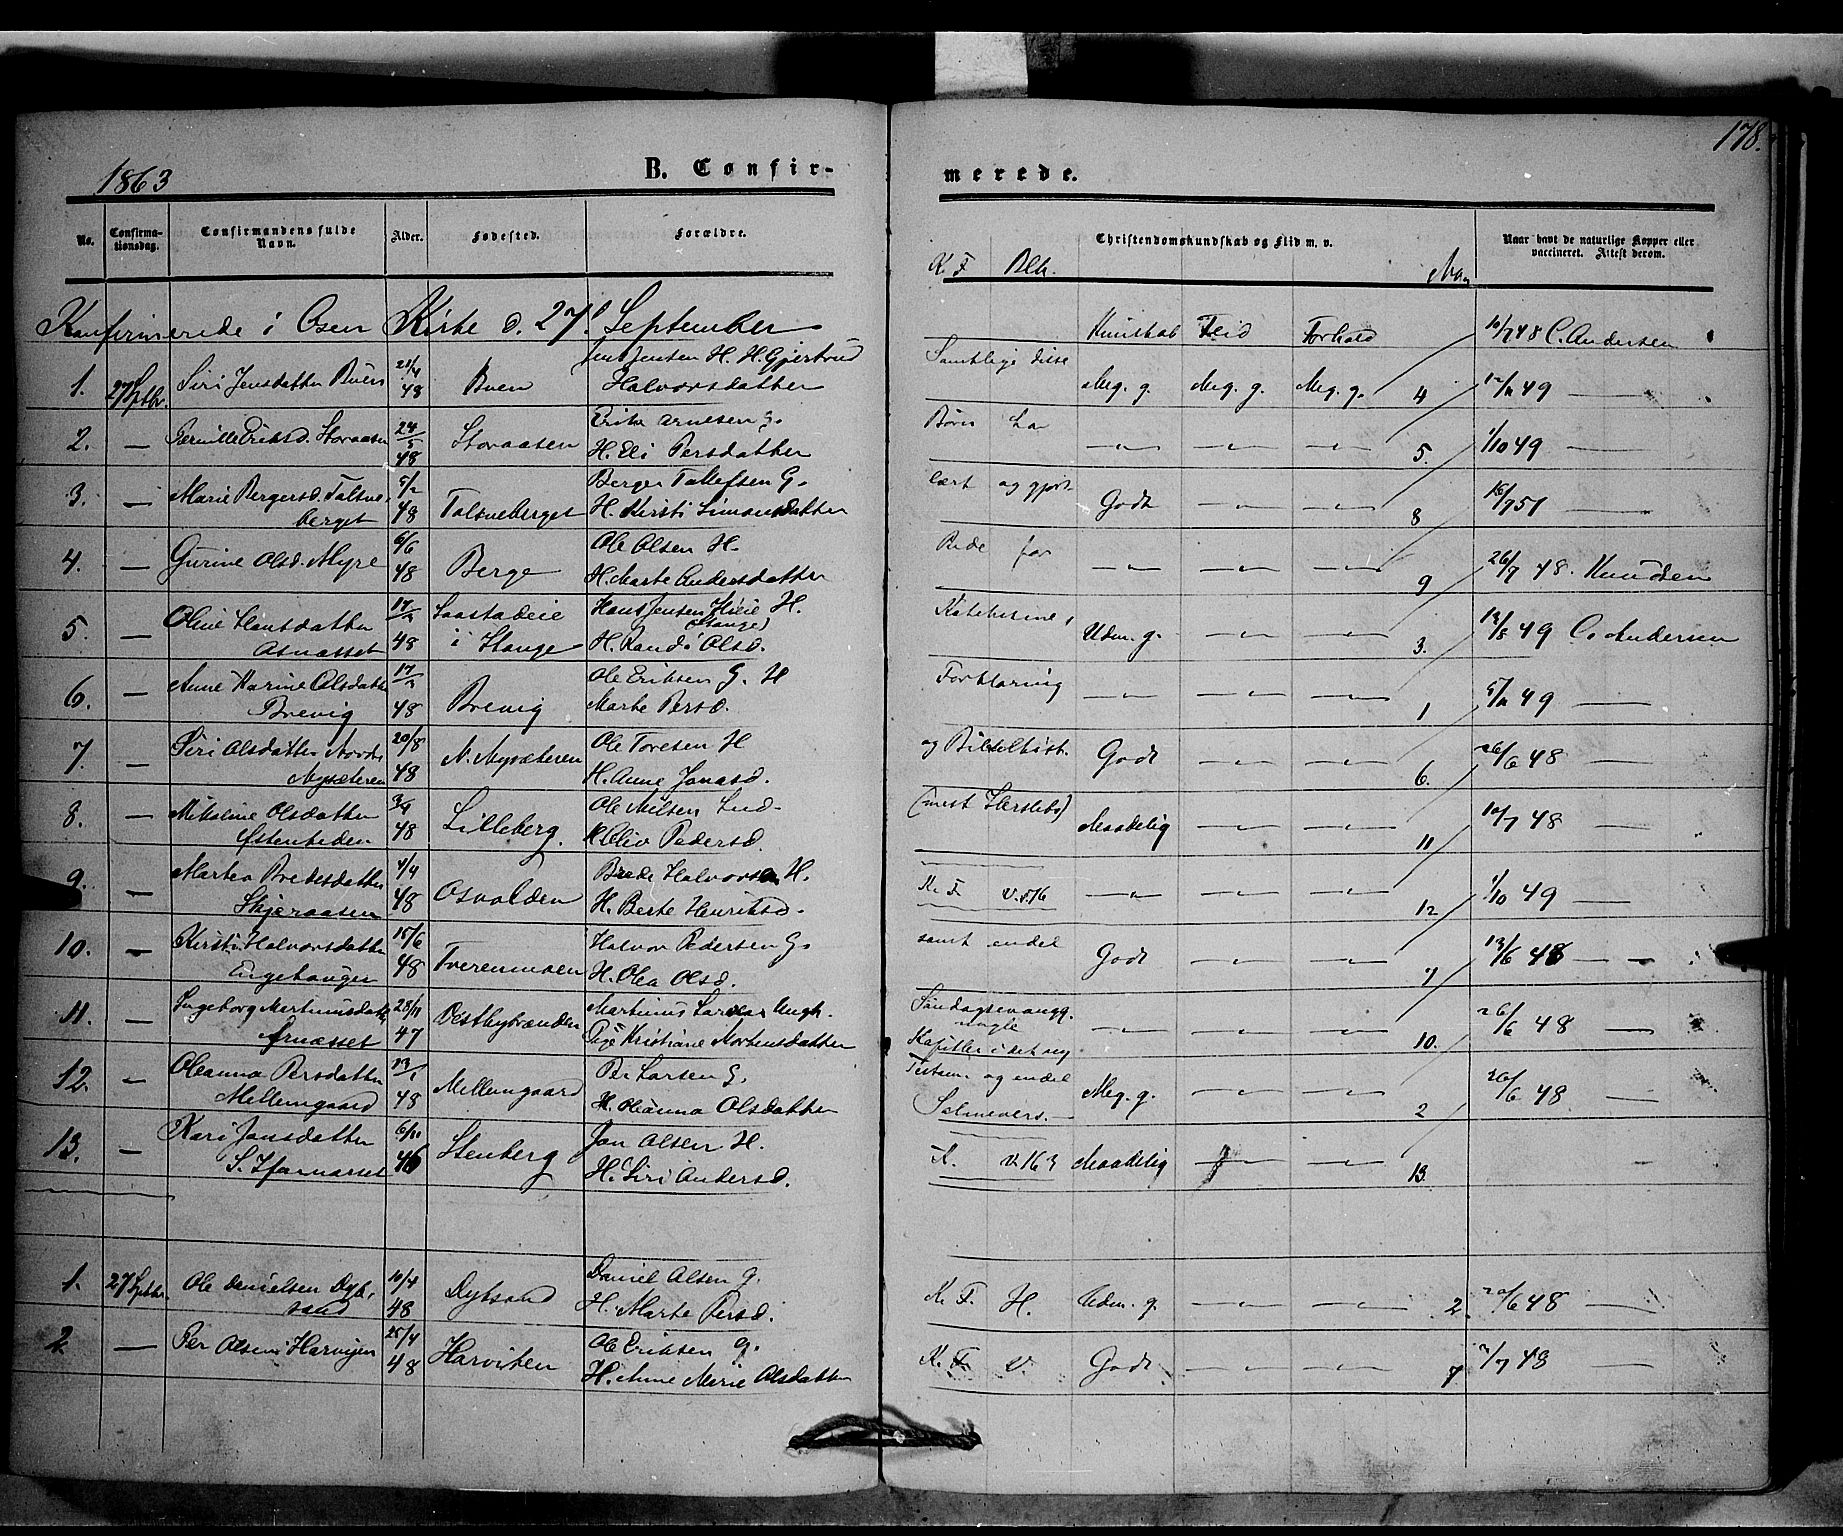 178.
1863
B. Confirmerede.
No.
Confirmationsdag.
Confirmandens fulde Navn.
Alder.
Fødested.
Forældre.
Christendomskundskab og Flid m. v.
Naar havt de naturlige Kopper eller vaccineret. Attest derom.
K. F
Konfirmerede i Osen Kirke d. 27d September
Kundskab Flid Forhold
1. 27 Sptbr. Siri Jensdatter Buen 21/4 48 Buen Jens Jensen H. H. Gjertrud Halvorsdatter Samtlige disse Meg. g. Meg. g. Meg. g. 4 10/7 48 C. Andersen
2. — Pernille Eriksd. Storaasen 24/5 48 Storaasen Erik Arnesen G. H. Eli Persdatter Børn har — — — 5. 49 —
3. — Marie Bergersd. Talsveberget 5/2 48 Talsveberget Berger Tollefsen G. H. Kirsti Simonsdatter lært og gjort Godt — — 8 1/10 49 —
4. — Gurine Olsd. Myre 6/6 48 Berge Ole Olsen H. H. Marte Andersdatter Rede for — — — 9 26/7 48. Knudsen
5. — Oline Hansdatter Osnæsset 48 Saastadeie i Stange Hans Jensen H. (Stange) H. Randi Olsd. Udm. g. — — 3. 49 C. Andersen
6. — Anne Karine Olsdatter Brevig 48 Brevig Ole Eriksen G. H Marte Persd. Forklaring — — — 1 49 —
7. — Siri Olsdatter Nordre Nysæteren 20/8 48 N. Nysæteren Ole Toresen H H. Anne Jonasd. og Bibelhist. Godt — — 6. 26/6 48 —
8. — Mikaline Olsdatter Ystenheden 48 Lilleberg Ole Nilsen Ind. H. Oliv Pedersd. (mest Herslebs) Maadelig — — 11 10/7 48 —
9. — Martea Bredesdatter Skjeraasen 4/4 48 Osvolden Brede Halvorsen H. H. Berte Henriksd. K. F. — — — 12 1/10 49 —
10. — Kirsti Halvorsdatter Engehaugen 15/6 48 Tverenmoen Halvor Pedersen G. H. Olea Olsd. samt endel Godt — — 7 13/6 48 —
11. — Ingeborg Martinusdatt. Arnæsset 28/11 47 Østbybrænden Martinus Larsen Ungk. Pige Kristiane Mortensdatter Søndagsevangg. nogle Kapitler i det ny — — — 10. 26/6 48 —
12. — Oleanna Persdatter Mellemgaard 13/1 48 Mellemgaard Per Larsen G. H. Oleanna Olsdatter Testam. og endel Salmevers. Meg. g. — — 2 26/6 48 —
13. — Kari Jonsdatter S. 46 Stenberg Jon Olsen H. H. Siri Andersd. Maadelig — — 13.
1. 27 Sptbr. Ole Danielsen Dybsand 10/4 48 Dybsand Daniel Olsen G. H. Marte Persd. K. F. H. Udm. g. — — 2 20/6 48 —
2 — Per Olsen Harvijen 25/4 48 Harviken Ole Eriksen G. H. Anne Marie Olsdatter K. F. V Godt — — 7 48 —